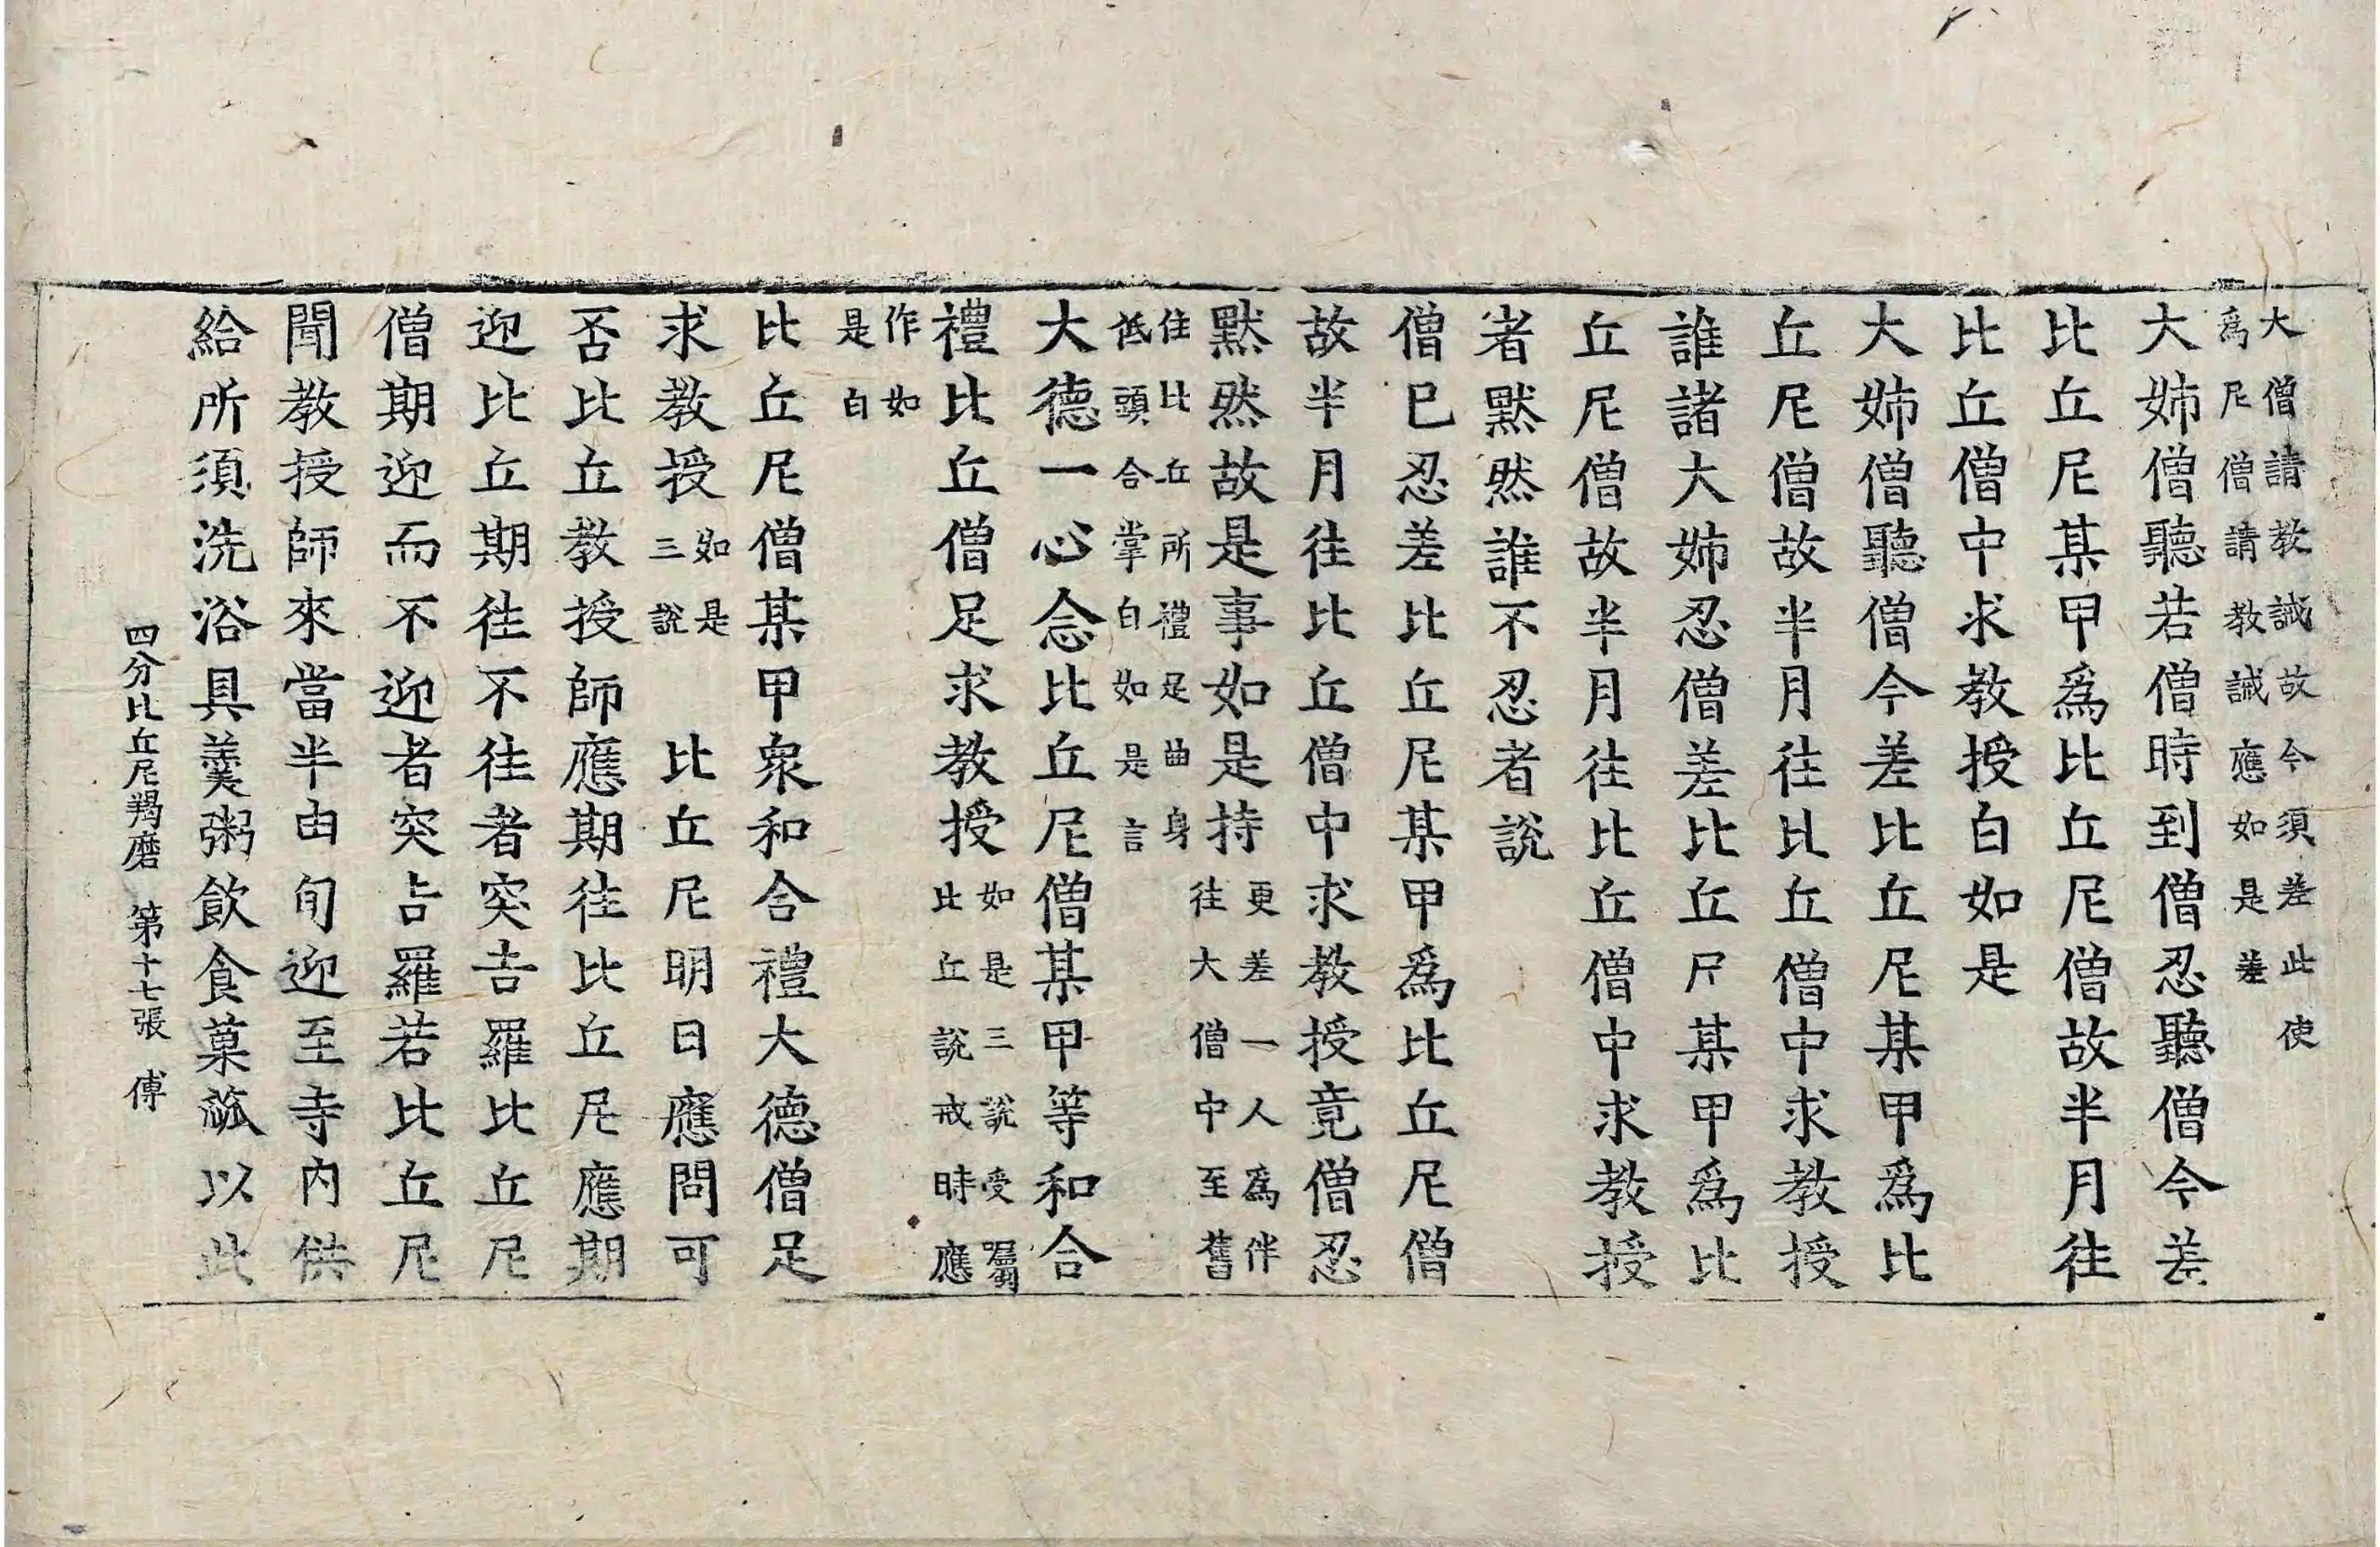 大僧請教誡故今須差此使
爲尼僧請教誡應如是差
大姉僧聽若僧時到僧忍聽僧今差
比丘尼某甲爲比丘尼僧故半月往
比丘僧中求教授白如是
大姉僧聽僧今差比丘尼某甲爲比
丘尼僧故半月往比丘僧中求教授
誰諸大姉忍僧差比丘尼某甲爲比
丘尼僧故半月往比丘僧中求教授
者黙然誰不忍者說
僧已忍差比丘尼某甲爲比丘尼僧
故半月往比丘僧中求教授竟僧忍
黙然故是事如是持更差一人爲伴往大僧中至舊
住比丘所禮足曲身
低頭合掌白如是言
大德一心念比丘尼僧某甲等和合
禮比丘僧足求教授如是三說受囑此丘說戒時應
作如
是白
比丘尼僧某甲衆和合禮大德僧足
求教授如是三說 比丘尼明日應問可
否比丘教授師應期往比丘尼應期
迎比丘期往不往者突吉羅比丘尼
僧期迎而不迎者突吉羅若比丘尼
聞教授師來當半由旬迎至寺内供
給所須洗浴具羹粥飮食菓蓏以此
四分比丘尼羯磨 第十七張 傅